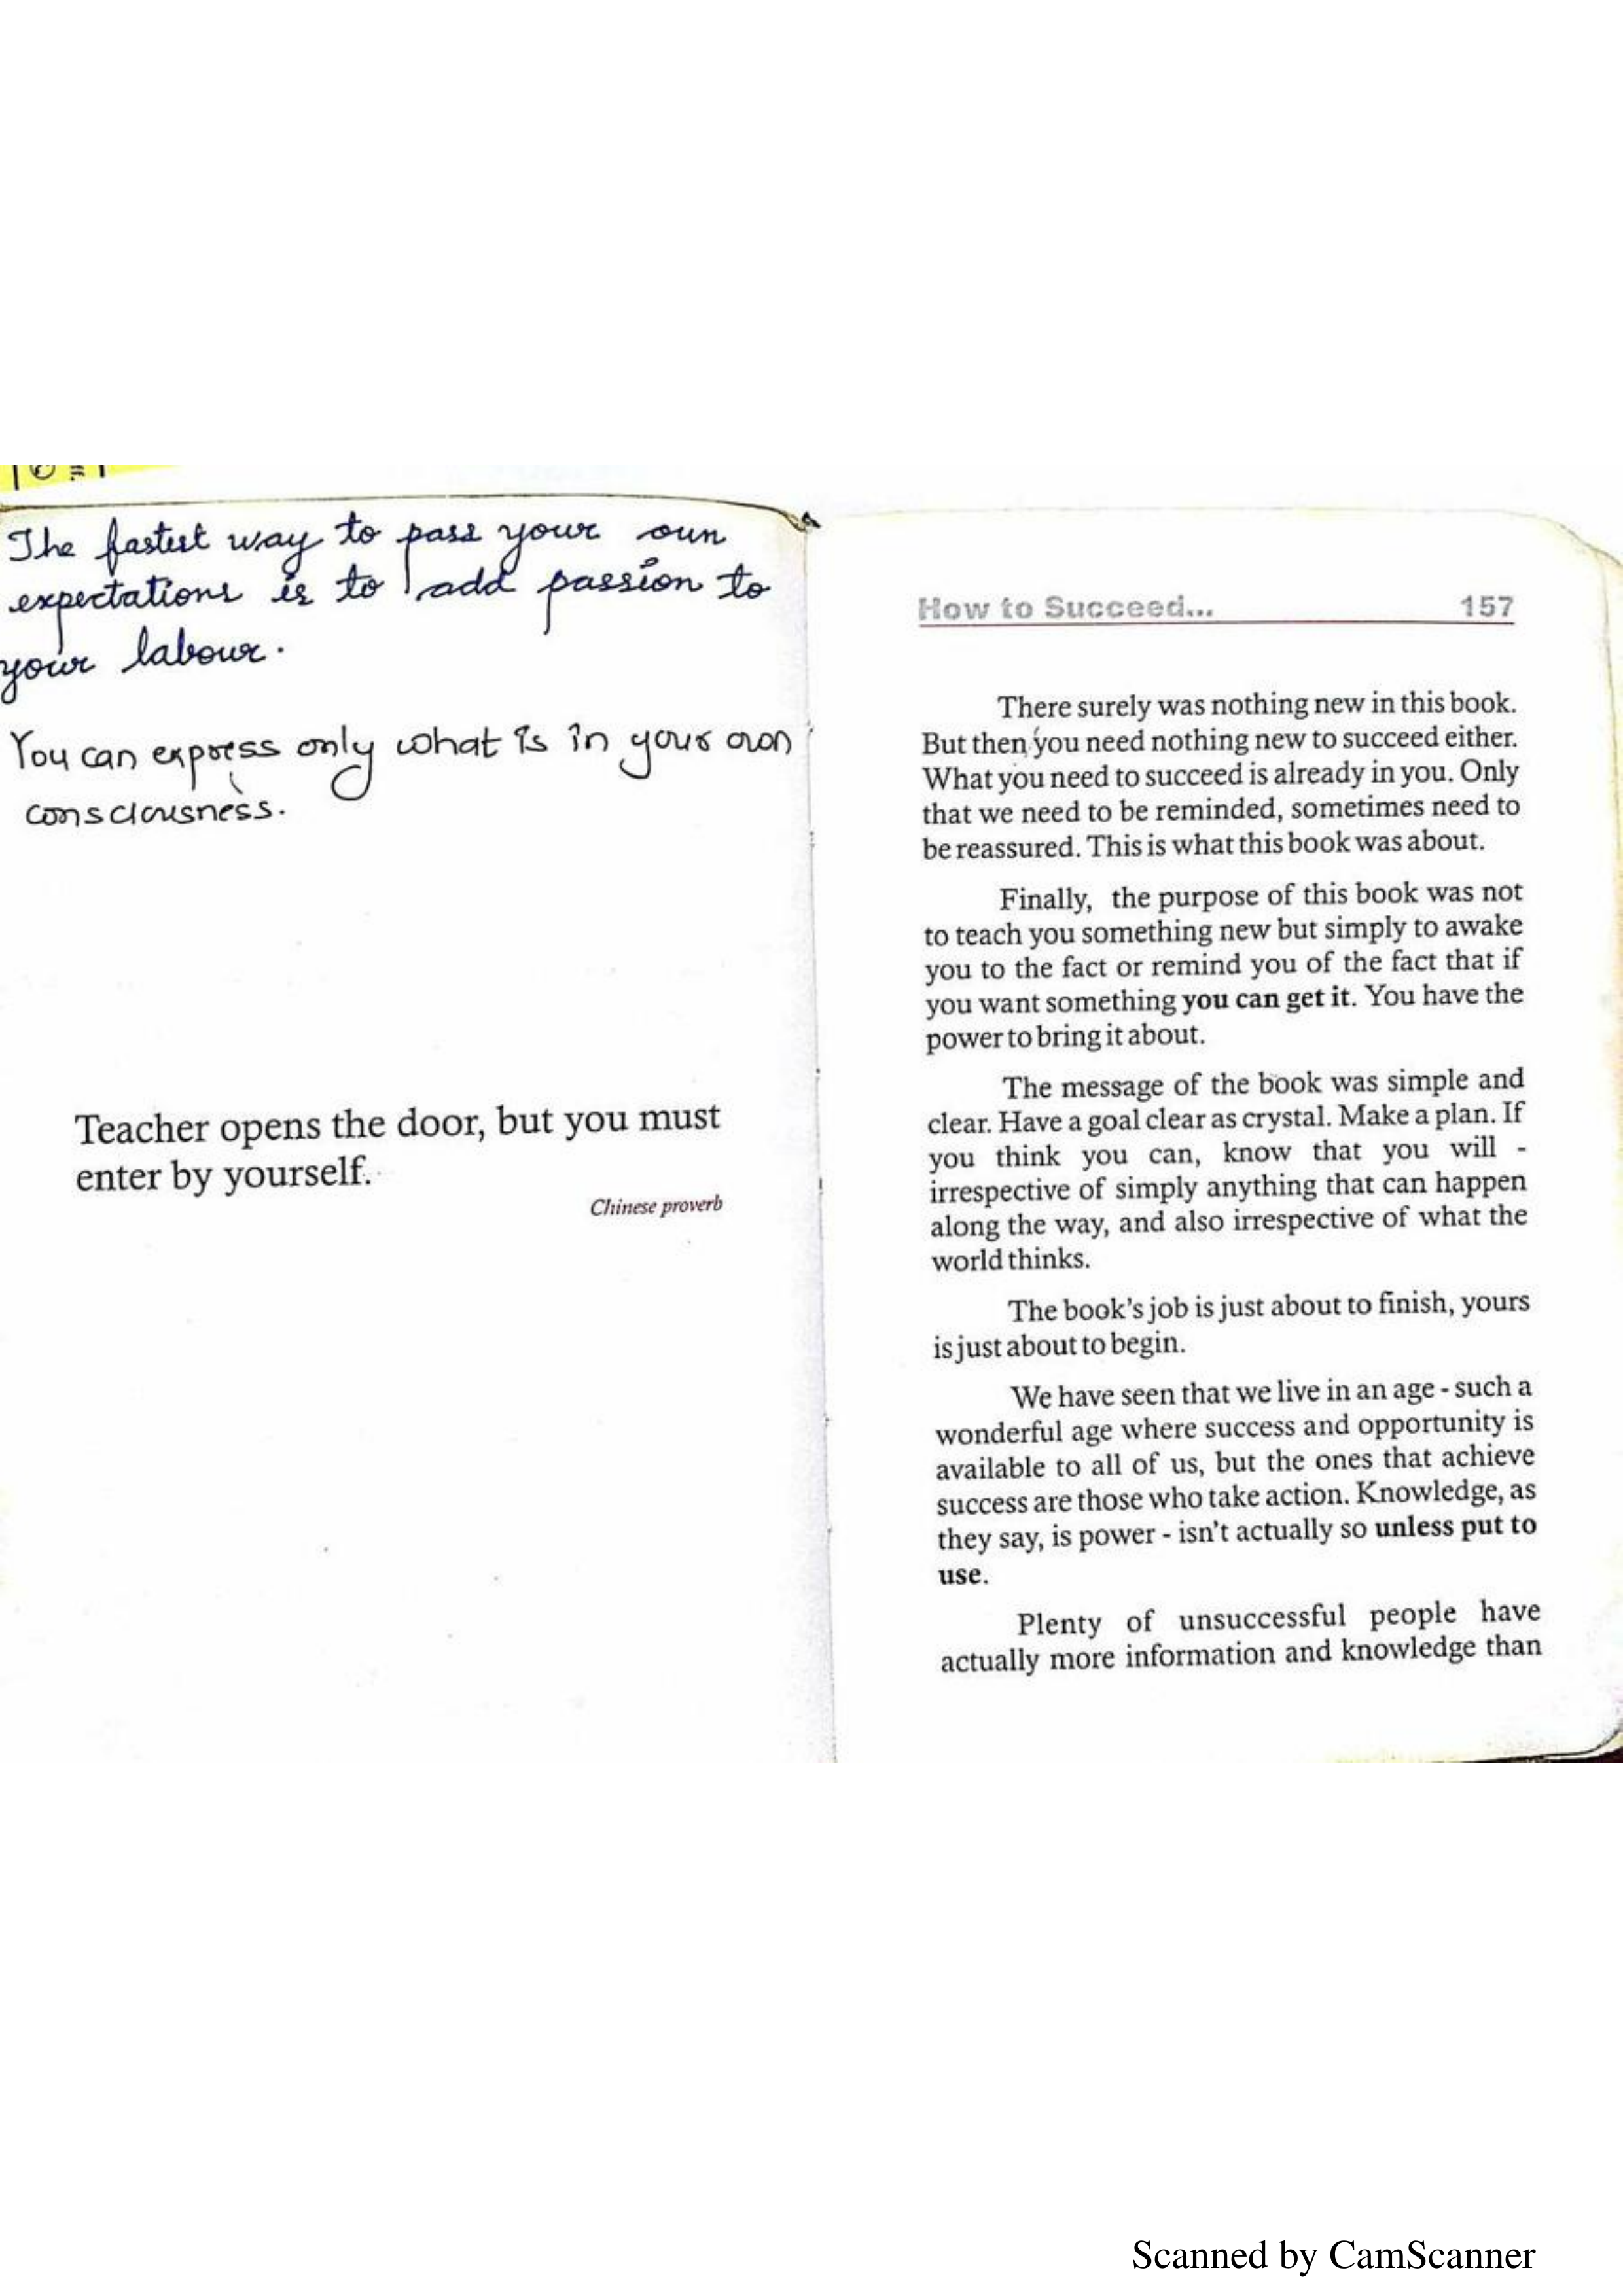 The fastest way to pass your own
expectations is to add passion to
your labour.
You can express only what is in your own
consciousness.
Teacher opens the door, but you must
enter by yourself.
Chinese proverb
How to Succeed... 157
There surely was nothing new in this book.
But then you need nothing new to succeed either.
What you need to succeed is already in you. Only
that we need to be reminded, sometimes need to
be reassured. This is what this book was about.
Finally, the purpose of this book was not
to teach you something new but simply to awake
you to the fact or remind you of the fact that if
you want something you can get it. You have the
power to bring it about.
The message of the book was simple and
clear. Have a goal clear as crystal. Make a plan. If
you think you can, know that you will -
irrespective of simply anything that can happen
along the way, and also irrespective of what the
world thinks.
The book's job is just about to finish, yours
is just about to begin.
We have seen that we live in an age - such a
wonderful age where success and opportunity is
available to all of us, but the ones that achieve
success are those who take action. Knowledge, as
they say, is power - isn't actually so unless put to
use.
Plenty of unsuccessful people have
actually more information and knowledge than
Scanned by CamScanner